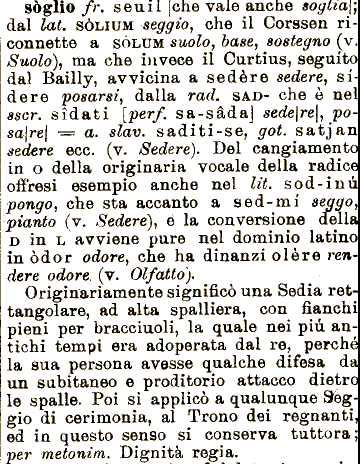 sòglio fr. seuil [che vale anche soglia];
dal lat. SÒLIUM seggio, che il Corssen ri-
connette a SÒLUM suolo, base, sostegno (v.
Suolo), ma che invece il Curtius, seguito
dal Bailly, avvicina a sedère sedere, sí-
dere posarsi, dalla rad. SAD- che è nel
sscr. sîdati [perf. sa-sâda] sede[re], po-
sa[re] = a. slav. saditi-se, got. satjan
sedere ecc. (v. Sedere). Del cangiamento
in O della originaria vocale della radice
offresi esempio anche nel lit. sod-inù
pongo, che sta accanto a sed-mi seggo,
pianto (v. Sedere), e la conversione della
D in L avviene pure nel dominio latino
in òdor odore, che ha dinanzi olère ren-
dere odore. (v. Olfatto).
Originariamente significò una Sedia ret-
tangolare, ad alta spalliera, con fianchi
pieni per bracciuoli, la quale nei piú an-
tichi tempi era adoperata dal re, perché
la sua persona avesse qualche difesa da
un subitaneo e proditorio attacco dietro
le spalle. Poi si applicò a qualunque Seg-
gio di cerimonia, al Trono dei regnanti,
ed in questo senso si conserva tuttora;
per metonim. Dignità regia.